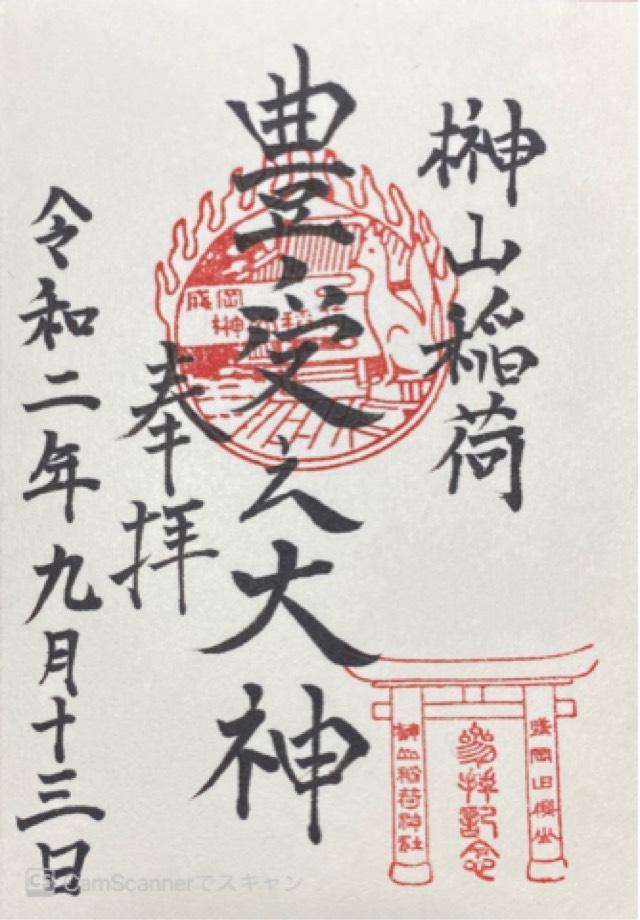 榊山稲荷
豊受之大神
奉拝
令和二年九月十三日
盛岡
榊山稲荷
榊山稲荷神社
参拝記念
CS CamScannerでスキャン